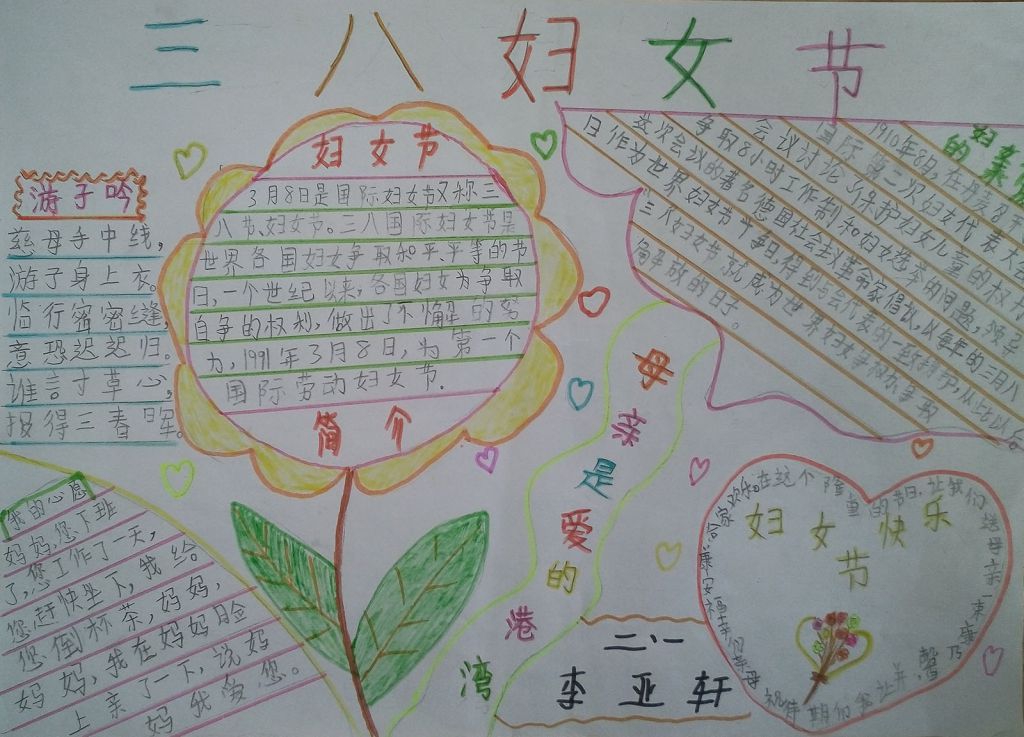 三八妇女节
妇女节
3月8日是国际妇女节又称三
八节、妇女节。三八国际妇女节是
世界各国妇女争取和平、平等的节
日,一个世纪以来,各国妇女为争取
自争的权利,做出了不懈的努
力,1991年3月8日,为第一个
国际劳动妇女节.
简介
游子吟
慈母手中线,
游子身上衣。
临行密密缝,
意恐迟迟归。
谁言寸草心,
报得三春晖。
我的心愿
妈妈,您下班
了,您工作了一天,
您赶快坐下,我给
您倒杯茶,妈妈,
妈妈,我在妈妈脸
上亲了一下,说妈
妈我爱您。
母亲是爱的港湾
1910年8月,在丹麦
国际第二次妇女代表大会
会议讨论了保护妇女儿童的权力
争取8小时工作制和妇女选举的问题,
兹次会议的著名德国社会主义革命家倡议,以每年的三月八
日作为世界妇女节斗争日,得到与会代表的一致拥护,从此以后
三八妇女节就成为世界妇女争取
解放的日子。
妇女节快乐
在这个隆重的节日,让我们给母亲一束
二·一
李亚轩